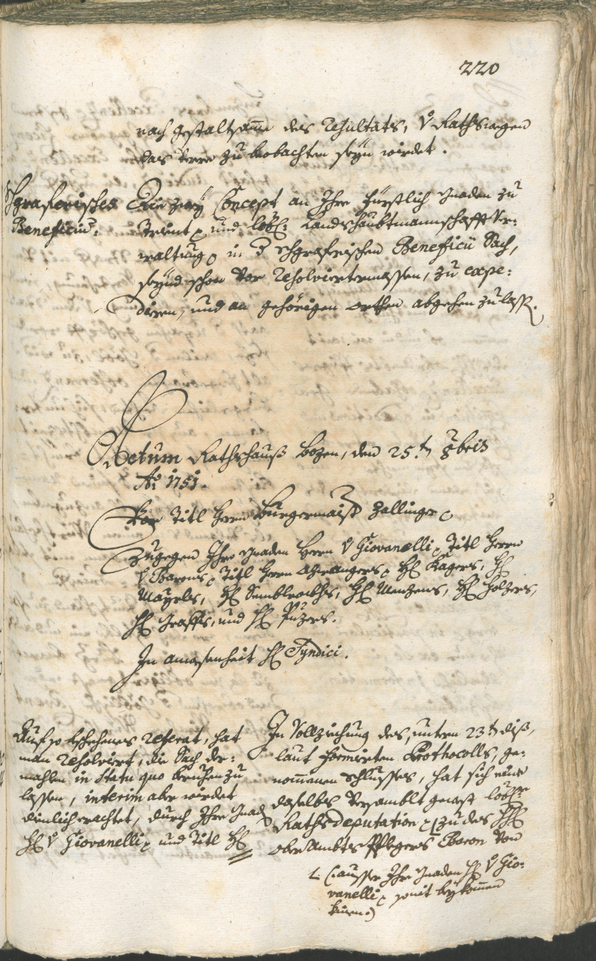 220
nach gestaltsame des resultats, V Rathswegen
das Verre zu beobachten seyn wirdet.
Schgrafferisches
Beneficium.
Die zwey Concept an Ihro Fürstlich Gnaden zu
Trient und Löbl: Landshaubtmannschaffts Ver-
waltung in Schgrafferischen Beneficii Sach,
seynd schon vor resolviertermassen, zu expe-
diren, und an gehörigen Orthen abgehen zulass.
Actum Rathshauß Bozen, den 25.t 8bris
Ao 1751.
Vor Titl Herrn Burgermaistr Zallinger
Zugegen Ihro Gnaden Herrn V Giovanelli, Titl Herrn
V Titl Herrn H Kagers, H
Mayrls, H H Menzens, H Holzers,
H Graffs, und H Puzers.
In anwesenheit H Syndici.
Auf so beschehenes referat, hat
man resolviert, die Sach der-
mahlen in Statu quo beruhen zu
lassen, interim aber wirdet
dienlich erachtet, durch Ihro Gnad
H V Giovanelli und Titl H
In Vollziehung des, untern 23t diß,
laut formirten Prothocolls, ge-
nommenen schlusses, hat sich eine
daselbst versamblt geweste löbl
Raths deputation zu des H
ober Ambts Pflegers Baron Von
(: ausser Ihro Gnaden H V Gio-
vanelli, so nit beykommen
kunen:)